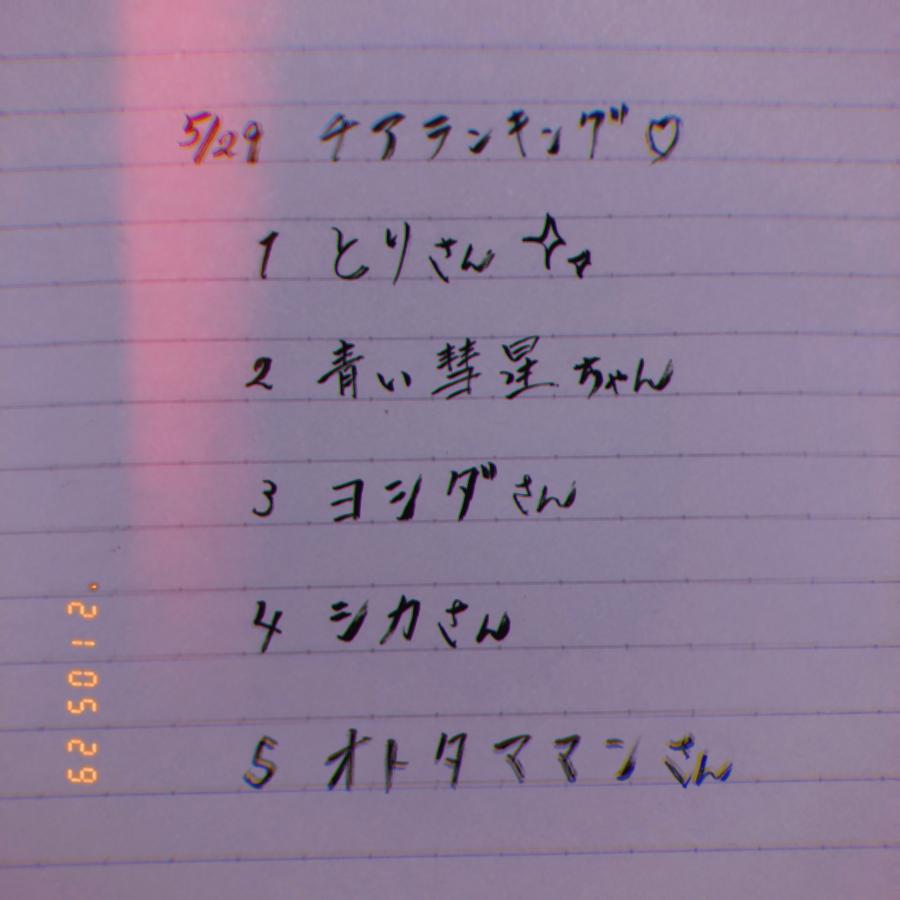 5/29 チアランキング♡
1 とりさん
2 青い彗星ちゃん
3 ヨシダさん
4 シカさん
5 オトタママンさん
'21 05 29